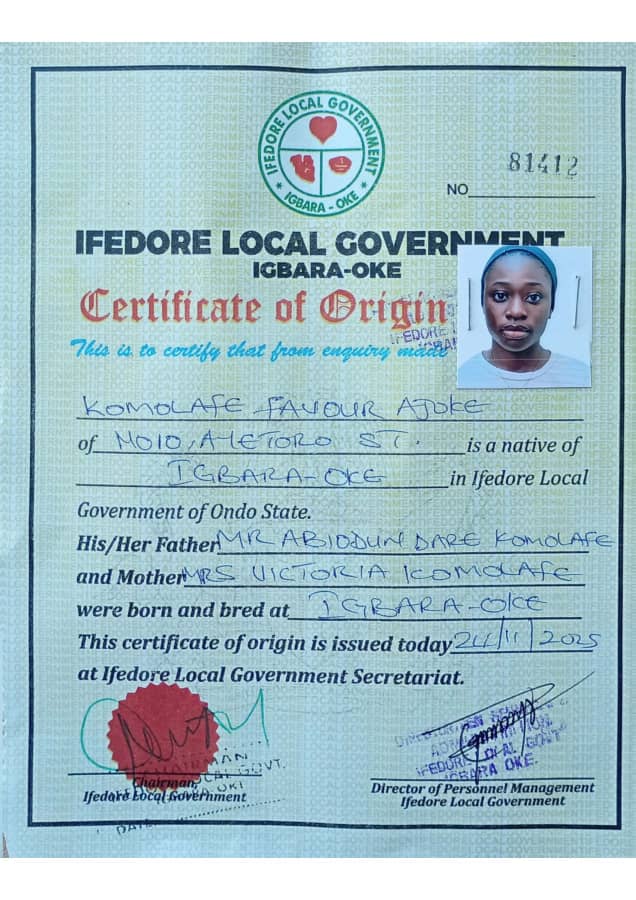 IFEDORE LOCAL GOVERNMENT
IGBARA-OKE
81412
NO
IFEDORE LOCAL GOVERNMENT
IGBARA-OKE
Certificate of Origin
IFEDORE
This is to certify that from enquiry made
KOMOLAFE FAVOUR AJOKE
of NO10, ALETORO ST. is a native of
IGBARA-OKE in Ifedore Local
Government of Ondo State.
His/Her Father MR ABIODUN DARE KOMOLAFE
and Mother MRS VICTORIA KOMOLAFE
were born and bred at IGBARA-OKE
This certificate of origin is issued today 24/11/2025
at Ifedore Local Government Secretariat.
CHAIRMAN
LOCAL GOVT.
DATE
IFEDORE LOCAL GOVT
IGBARA OKE.
Chairman,
Ifedore Local Government
Director of Personnel Management
Ifedore Local Government